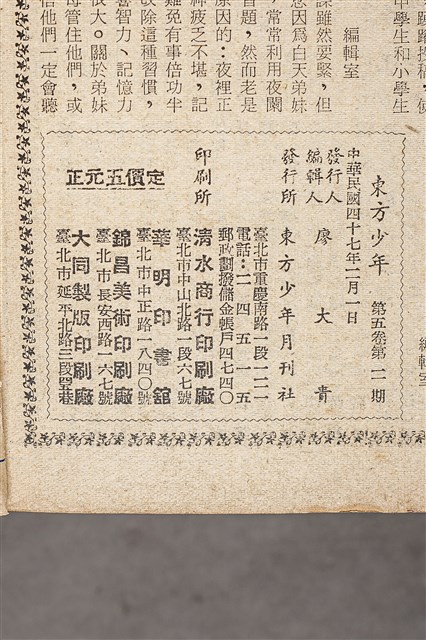 中學生和小學生
編輯室
課雖然要緊，但
因爲白天弟妹
，常常利用夜闌
習題，然而老是
原因的：夜裡正
神疲乏不堪，記
難免有事倍功半
除這種習慣，
響智力、記憶力
很大。關於弟妹
管住他們，或
他們一定會聽
東方少年　第五卷第二期
中華民國四十七年二月一日
發行人
編輯人　廖大貴
發行所　東方少年月刊社
臺北市重慶南路一段一二一
電話：二四五一五
郵政劃撥儲金帳戶四七四〇
印刷所　清水商行印刷廠
臺北市中山北路一段六七號
華明印書舘
臺北市中正路一八四〇號
錦昌美術印刷廠
臺北市長安西路一六七號
大同製版印刷廠
臺北市延平北路三段四五巷
定價五元正
編輯室